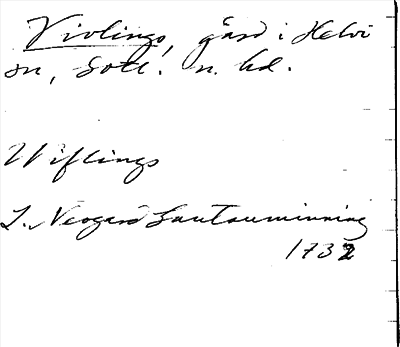 Vivlings, gård i Helvi
sn, Gotl. n. hd.
Wiflings
L. Neogard Gautauminning
1732